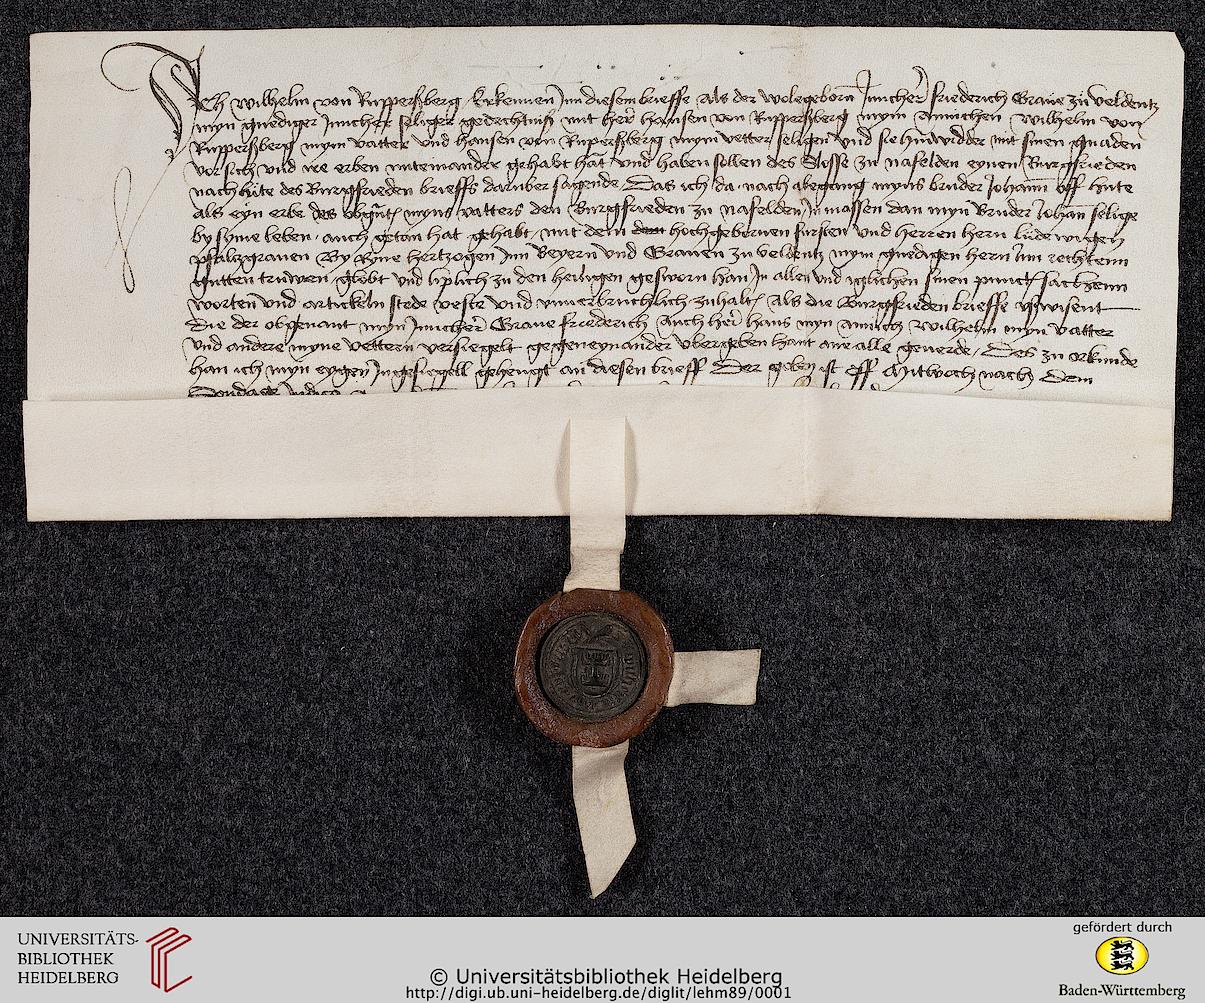 Ich Wilhelm von Ruppersberg Erkennen Inn diesem brieffe Als der Wolegeborn Juncher Friederich Graue zu Veldentz
myn gnediger Juncher seliger gedechtniß mit her Hansen von Ruppersberg mym Annichen Wilhelm von
Ruppersberg mym vatter und Hansen von Rupersberg mym vetter seligen Und sie hinwidder mit sinen gnaden
vor sich und ire erben miteinander gehabt han und haben sollen des Slosse zu Nafelden eynen Burgfrieden
nach lute des Burgfrieden brieffs daruber sagende, Das ich da nach abegang myns bruder Johann off hute
als eyn erbe des obgnt myns vatters den Burgfrieden zu Nafelden In massen dan myn Bruder Johan selige
by syme leben auch getan hat gehabt, mit dem hochgebornen fursten und herren hern Ludewigen
Pfaltzgrauen By Ryne Hertzogen Inn Beyern Und Grauen zu Veldentz mym gnedigen hern Inn rechtenn
gutten truwen globt und liplich zu den heiligen gesworn han In allen und iglichen sinen punct sachenn
worten und artickeln stede veste und unverbruchlich zuhalt Als die Burgfrieden brieffe ußwisent
Die der obgenant myn Juncher Graue Friederich Auch her Hans myn Anich Wilhelm myn vatter
Und andere myne vettern versiegelt gegeneynander ubergeben hant ane alle geuerde, Des zu orkunde
han ich myn eygen Ingesiegell gehengt an diesen brieff Der geben ist off Mitwoch nach dem
Sondage
UNIVERSITÄTS-
BIBLIOTHEK
HEIDELBERG
© Universitätsbibliothek Heidelberg
http://digi.ub.uni-heidelberg.de/diglit/lehm89/0001
gefördert durch
Baden-Württemberg